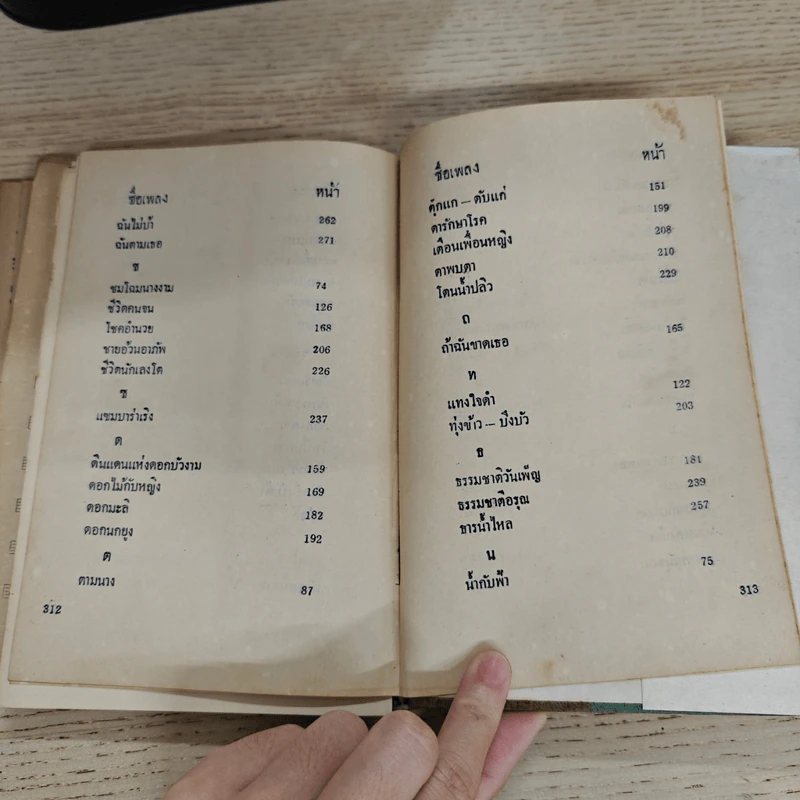 ชื่อเพลง หน้า
ฉันไม่บ้า 262
ฉันตามเธอ 271
ช
ชมโฉมนางงาม 74
ชีวิตคนจน 126
โชคอำนวย 168
ชายอ้วนอาภัพ 206
ชีวิตนักเลงโต 226
ซ
แซมบาร่าเริง 237
ด
ดินแดนแห่งดอกบัวงาม 159
ดอกไม้กับหญิง 169
ดอกมะลิ 182
ดอกนกยูง 192
ต
ตามนาง 87
312
ชื่อเพลง หน้า
ตุ๊กแก – ตับแก่ 151
ตารักษาโรค 199
เตือนเพื่อนหญิง 208
ตาพบตา 210
โตนน้ำปลิว 229
ถ
ถ้าฉันขาดเธอ 165
ท
แทงใจดำ 122
ทุ่งข้าว – บึงบัว 203
ธ
ธรรมชาติวันเพ็ญ 181
ธรรมชาติอรุณ 239
ธารน้ำไหล 257
น
น้ำกับฟ้า 75
313